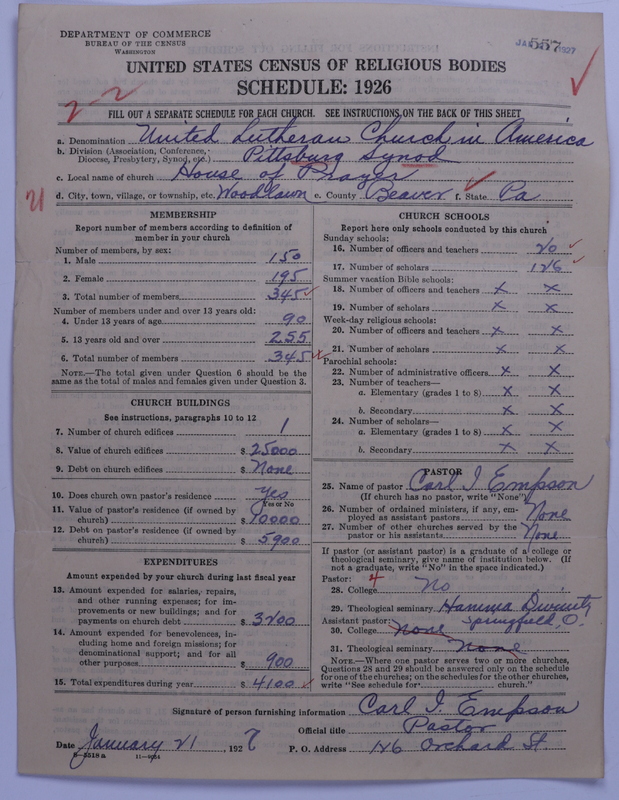 DEPARTMENT OF COMMERCE
BUREAU OF THE CENSUS
WASHINGTON
557
1927
UNITED STATES CENSUS OF RELIGIOUS BODIES
SCHEDULE: 1926
2-2
FILL OUT A SEPARATE SCHEDULE FOR EACH CHURCH. SEE INSTRUCTIONS ON THE BACK OF THIS SHEET
a. Denomination United Lutheran Church in America
b. Division (Association, Conference, Diocese, Presbytery, Synod, etc.) Pittsburg Synod
c. Local name of church House of Prayer
21
d. City, town, village, or township, etc. Woodlawn e. County Beaver f. State Pa
MEMBERSHIP
Report number of members according to definition of
member in your church
Number of members, by sex:
1. Male 150
2. Female 195
3. Total number of members 345
Number of members under and over 13 years old:
4. Under 13 years of age 90
5. 13 years old and over 255
6. Total number of members 345
NOTE.—The total given under Question 6 should be
same as the total of males and females given under Question 3.
CHURCH BUILDINGS
See instructions, paragraphs 10 to 12
7. Number of church edifices 1
8. Value of church edifices $ 25000
9. Debt on church edifices $ None
10. Does church own pastor's residence Yes
Yes or No
11. Value of pastor's residence (if owned by
church) $ 10000
12. Debt on pastor's residence (if owned by
church) $ 5900
EXPENDITURES
Amount expended by your church during last fiscal year
13. Amount expended for salaries, repairs,
and other running expenses; for im-
provements or new buildings; and for
payments on church debt $ 3200
14. Amount expended for benevolences, in-
cluding home and foreign missions; for
denominational support; and for all
other purposes $ 900
15. Total expenditures during year $ 4100
CHURCH SCHOOLS
Report here only schools conducted by this church
Sunday schools:
16. Number of officers and teachers 20
17. Number of scholars 126
Summer vacation Bible schools:
18. Number of officers and teachers x x
19. Number of scholars x x
Week-day religious schools:
20. Number of officers and teachers x x
21. Number of scholars x x
Parochial schools:
22. Number of administrative officers x x
23. Number of teachers—
a. Elementary (grades 1 to 8) x x
b. Secondary x x
24. Number of scholars—
a. Elementary (grades 1 to 8) x x
b. Secondary x x
PASTOR
25. Name of pastor Carl I. Empson
(If church has no pastor, write "None")
26. Number of ordained ministers, if any, em-
ployed as assistant pastors None
27. Number of other churches served by the
pastor or his assistants None
If pastor (or assistant pastor) is a graduate of a college or
theological seminary, give name of institution below. (If
not a graduate, write "No" in the space indicated.)
Pastor: 4
28. College No
29. Theological seminary Hamma Divinity
Springfield O.
Assistant pastor:
30. College None
31. Theological seminary None
NOTE.—Where one pastor serves two or more churches,
Questions 28 and 29 should be answered only on the schedule
for one of the churches; on the schedules for the other churches,
write "See schedule for church."
Signature of person furnishing information Carl I. Empson
Official title Pastor
Date January 21, 1927 P. O. Address 126 Orchard St.